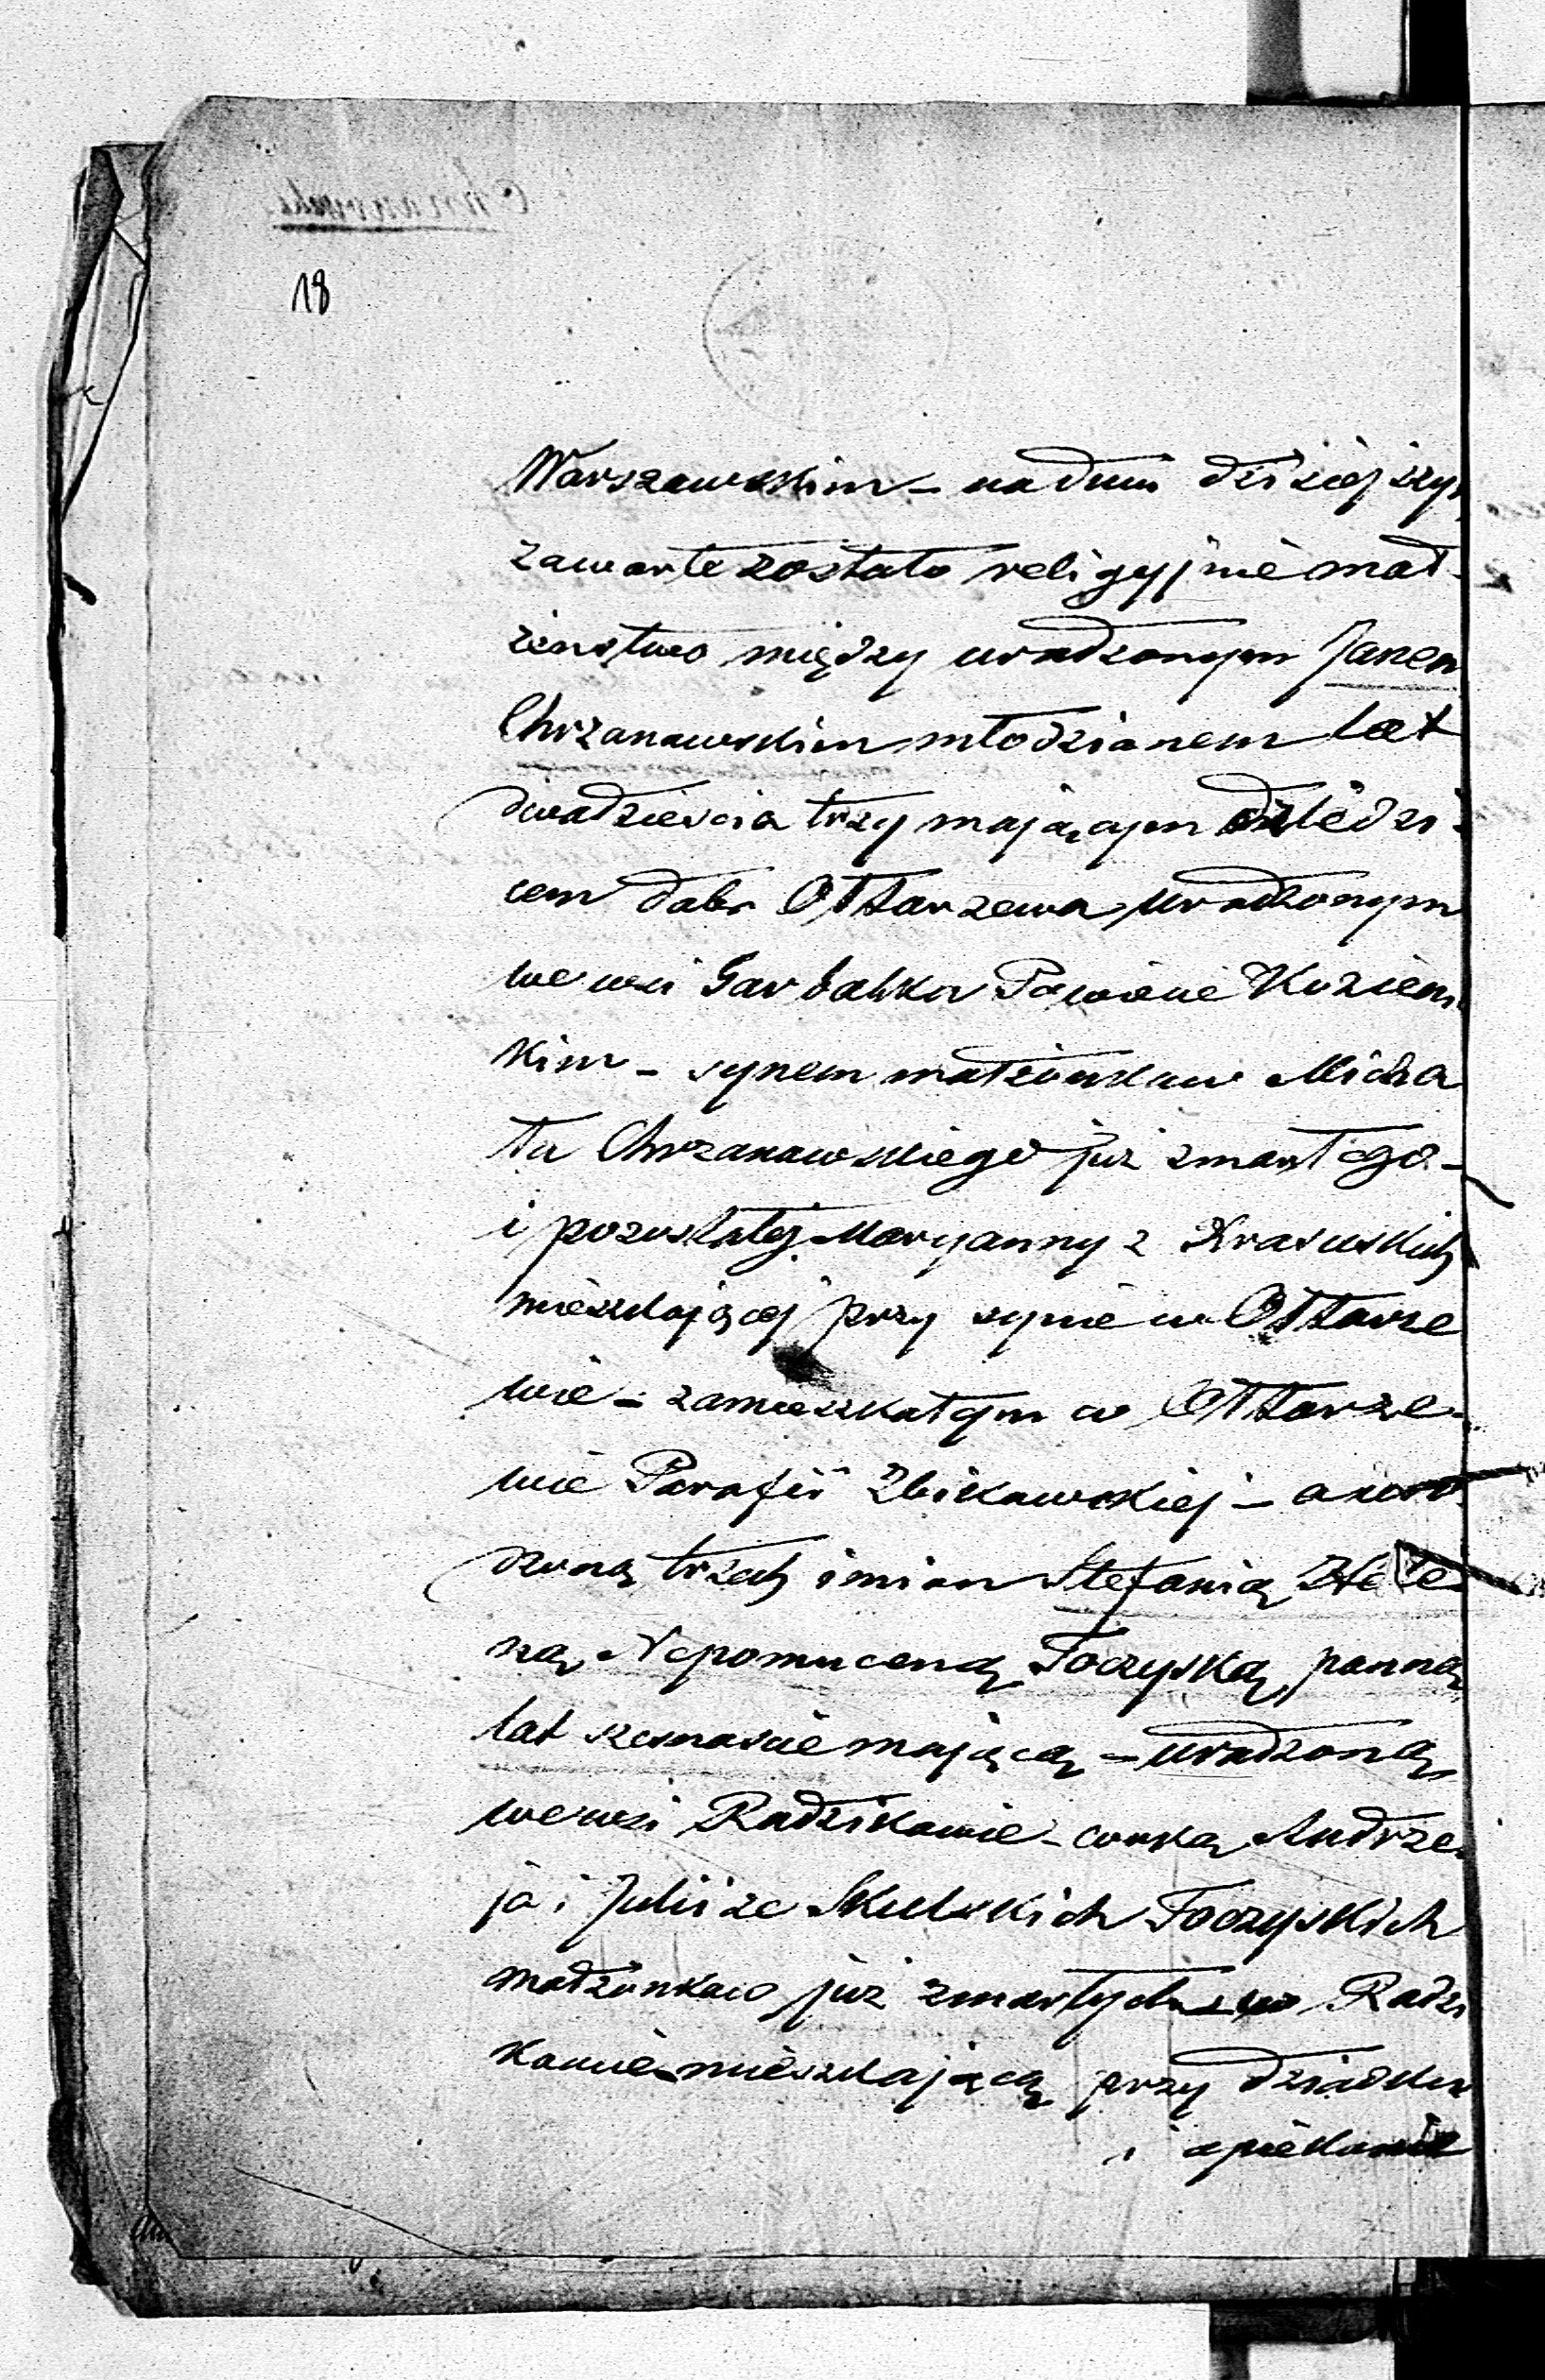 18
Warszawskim – na dniu dzisiejszym
zawarte zostało religyjnie mał-
żeństwo między urodzonym Janem
Chrzanowskim młodzianem lat
dwadzieścia trzy mającym dziedzi-
cem dobr Ołtarzewa, urodzonym
we wsi Garbatka Powiecie Koziem
kim – synem małżonkow Micha
ła Chrzanowskiego już zmarłego –
i pozostałej Maryanny z Krasuskich
mieszkającej przy synie w Ołtarze
wie – zamieszkałym w Ołtarze-
wie Parafii Zbikowskiej – a uro
dzoną trzech imion Stefanią Hele-
ną Nepomuceną Toczyską, panną
lat szesnaście mającą – urodzoną
we wsi Radzikowie – corką Andrze-
ja i Julii ze Skulskich Toczyskich
małżonkow już zmarłych – w Radzi
kowie mieszkającą przy dziadku
i opiekunie